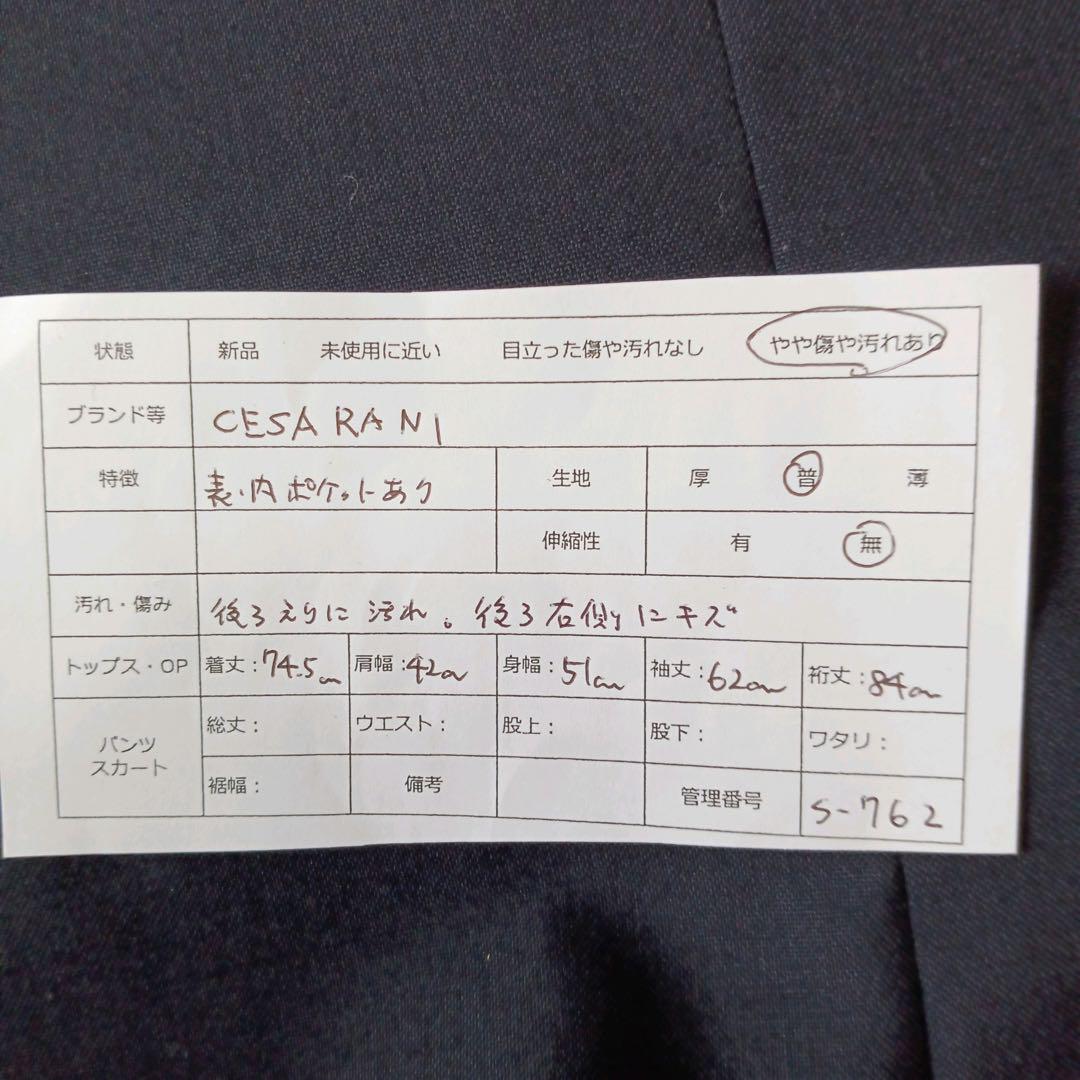 状態 新品 未使用に近い 目立った傷や汚れなし やや傷や汚れあり
ブランド等 CESARANI
特徴 表・内ポケットあり 生地 厚 普 薄
伸縮性 有 無
汚れ・傷み 後ろえりに汚れ。後ろ右側にキズ
トップス・OP 着丈:74.5cm 肩幅:42cm 身幅:51cm 袖丈:62cm 裄丈:84cm
パンツ
スカート
総丈: ウエスト: 股上: 股下: ワタリ:
裾幅: 備考 管理番号 S-762